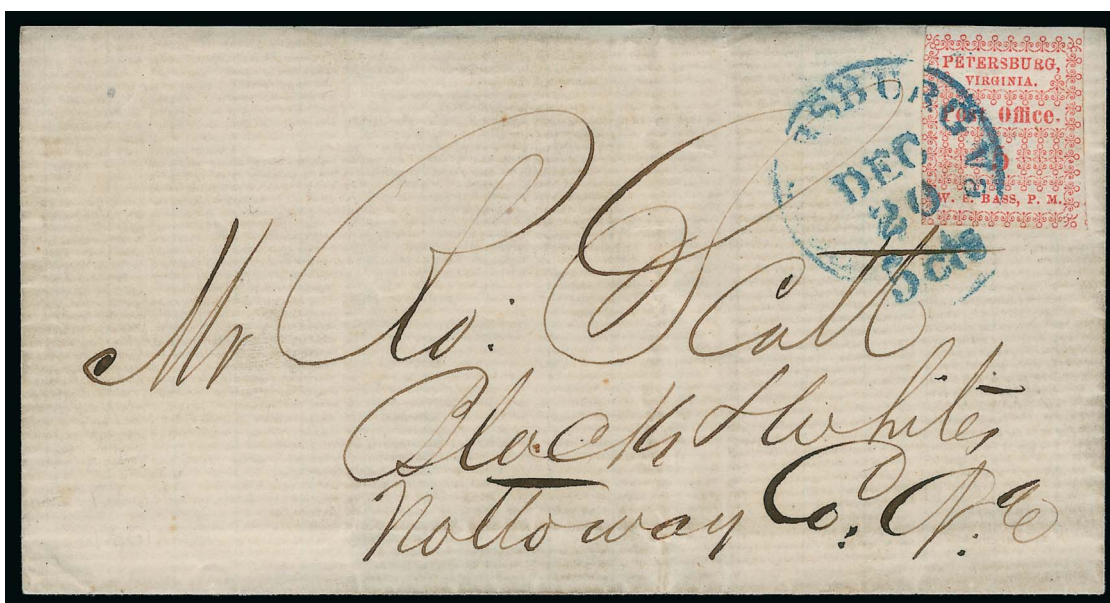 PETERSBURG,
VIRGINIA.
Post Office.
W. E. BASS, P. M.
RSBURG Va
DEC
20
5cts
Mr Ro. Scott
Blacks & Whites
Nottoway Co.